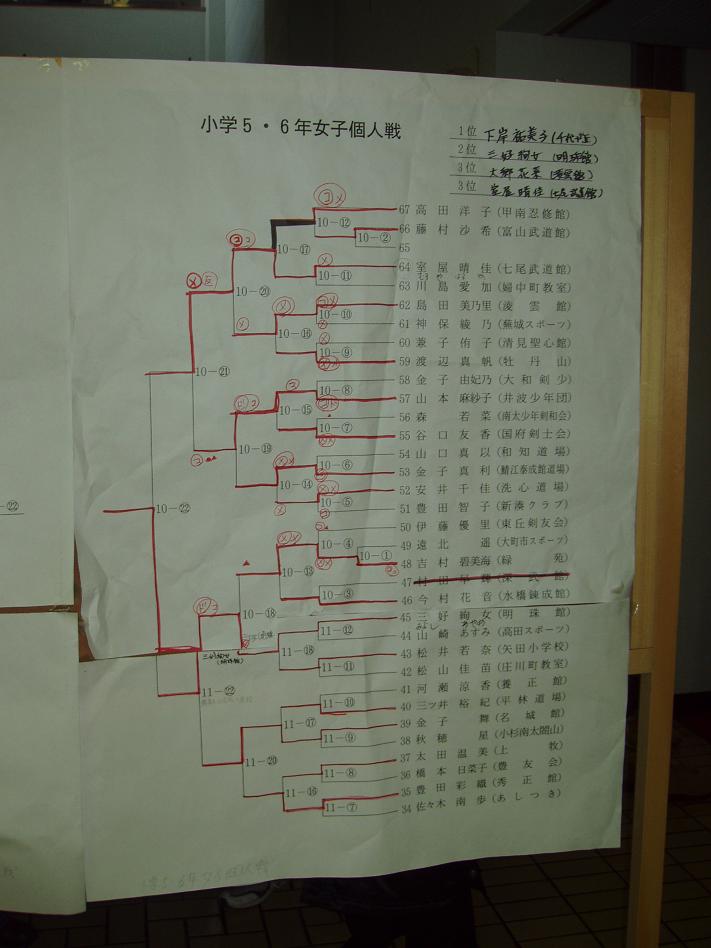 小学5・6年女子個人戦
1位
2位 三好絢女(明珠館)
3位
3位 室屋晴佳(七尾武道館)
67 高田洋子(甲南忍修館)
66 藤村沙希(富山武道館)
65
64 室屋晴佳(七尾武道館)
63 川島愛加(婦中町教室)
62 島田美乃里(凌雲館)
61 神保綾乃(蕪城スポーツ)
60 兼子侑子(清見聖心館)
59 渡辺真帆(牡丹山)
58 金子由妃乃(大和剣少)
57 山本麻紗子(井波少年団)
56 森若菜(南太少年剣和会)
55 谷口友香(国府剣士会)
54 山口真以(和知道場)
53 金子真利(鯖江泰成館道場)
52 安井千佳(洗心道場)
51 豊田智子(新湊クラブ)
50 伊藤優里(東丘剣友会)
49 遠北遥(大町市スポーツ)
48 吉村碧美海(緑苑)
47 村田早舞(深武館)
46 今村花音(水橋錬成館)
45 三好絢女(明珠館)
44 山崎あすみ(高田スポーツ)
43 松井若奈(矢田小学校)
42 松山佳苗(庄川町教室)
41 河瀬涼香(養正館)
40 三ツ井裕紀(平林道場)
39 金子舞(名城館)
38 秋穂星(小杉南太閤山)
37 太田温美(上牧)
36 橋本日菜子(豊友会)
35 豊田彩織(秀正館)
34 佐々木南歩(あしつき)
10-⑫
10-②
10-⑰
10-⑪
10-⑳
10-⑩
10-⑯
10-⑨
10-㉑
10-⑧
10-⑮
10-⑦
10-⑲
10-⑥
10-⑭
10-⑤
10-㉒
10-④
10-①
10-⑬
10-③
10-⑱
11-⑫
11-⑱
11-⑪
11-㉒
11-⑩
11-⑰
11-⑨
11-⑳
11-⑧
11-⑯
11-⑦